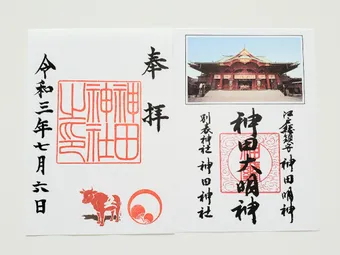 奉拝
神田
神社
之印
令和三年七月六日
江戸総鎮守 神田明神
神田大明神
別表神社 神田神社